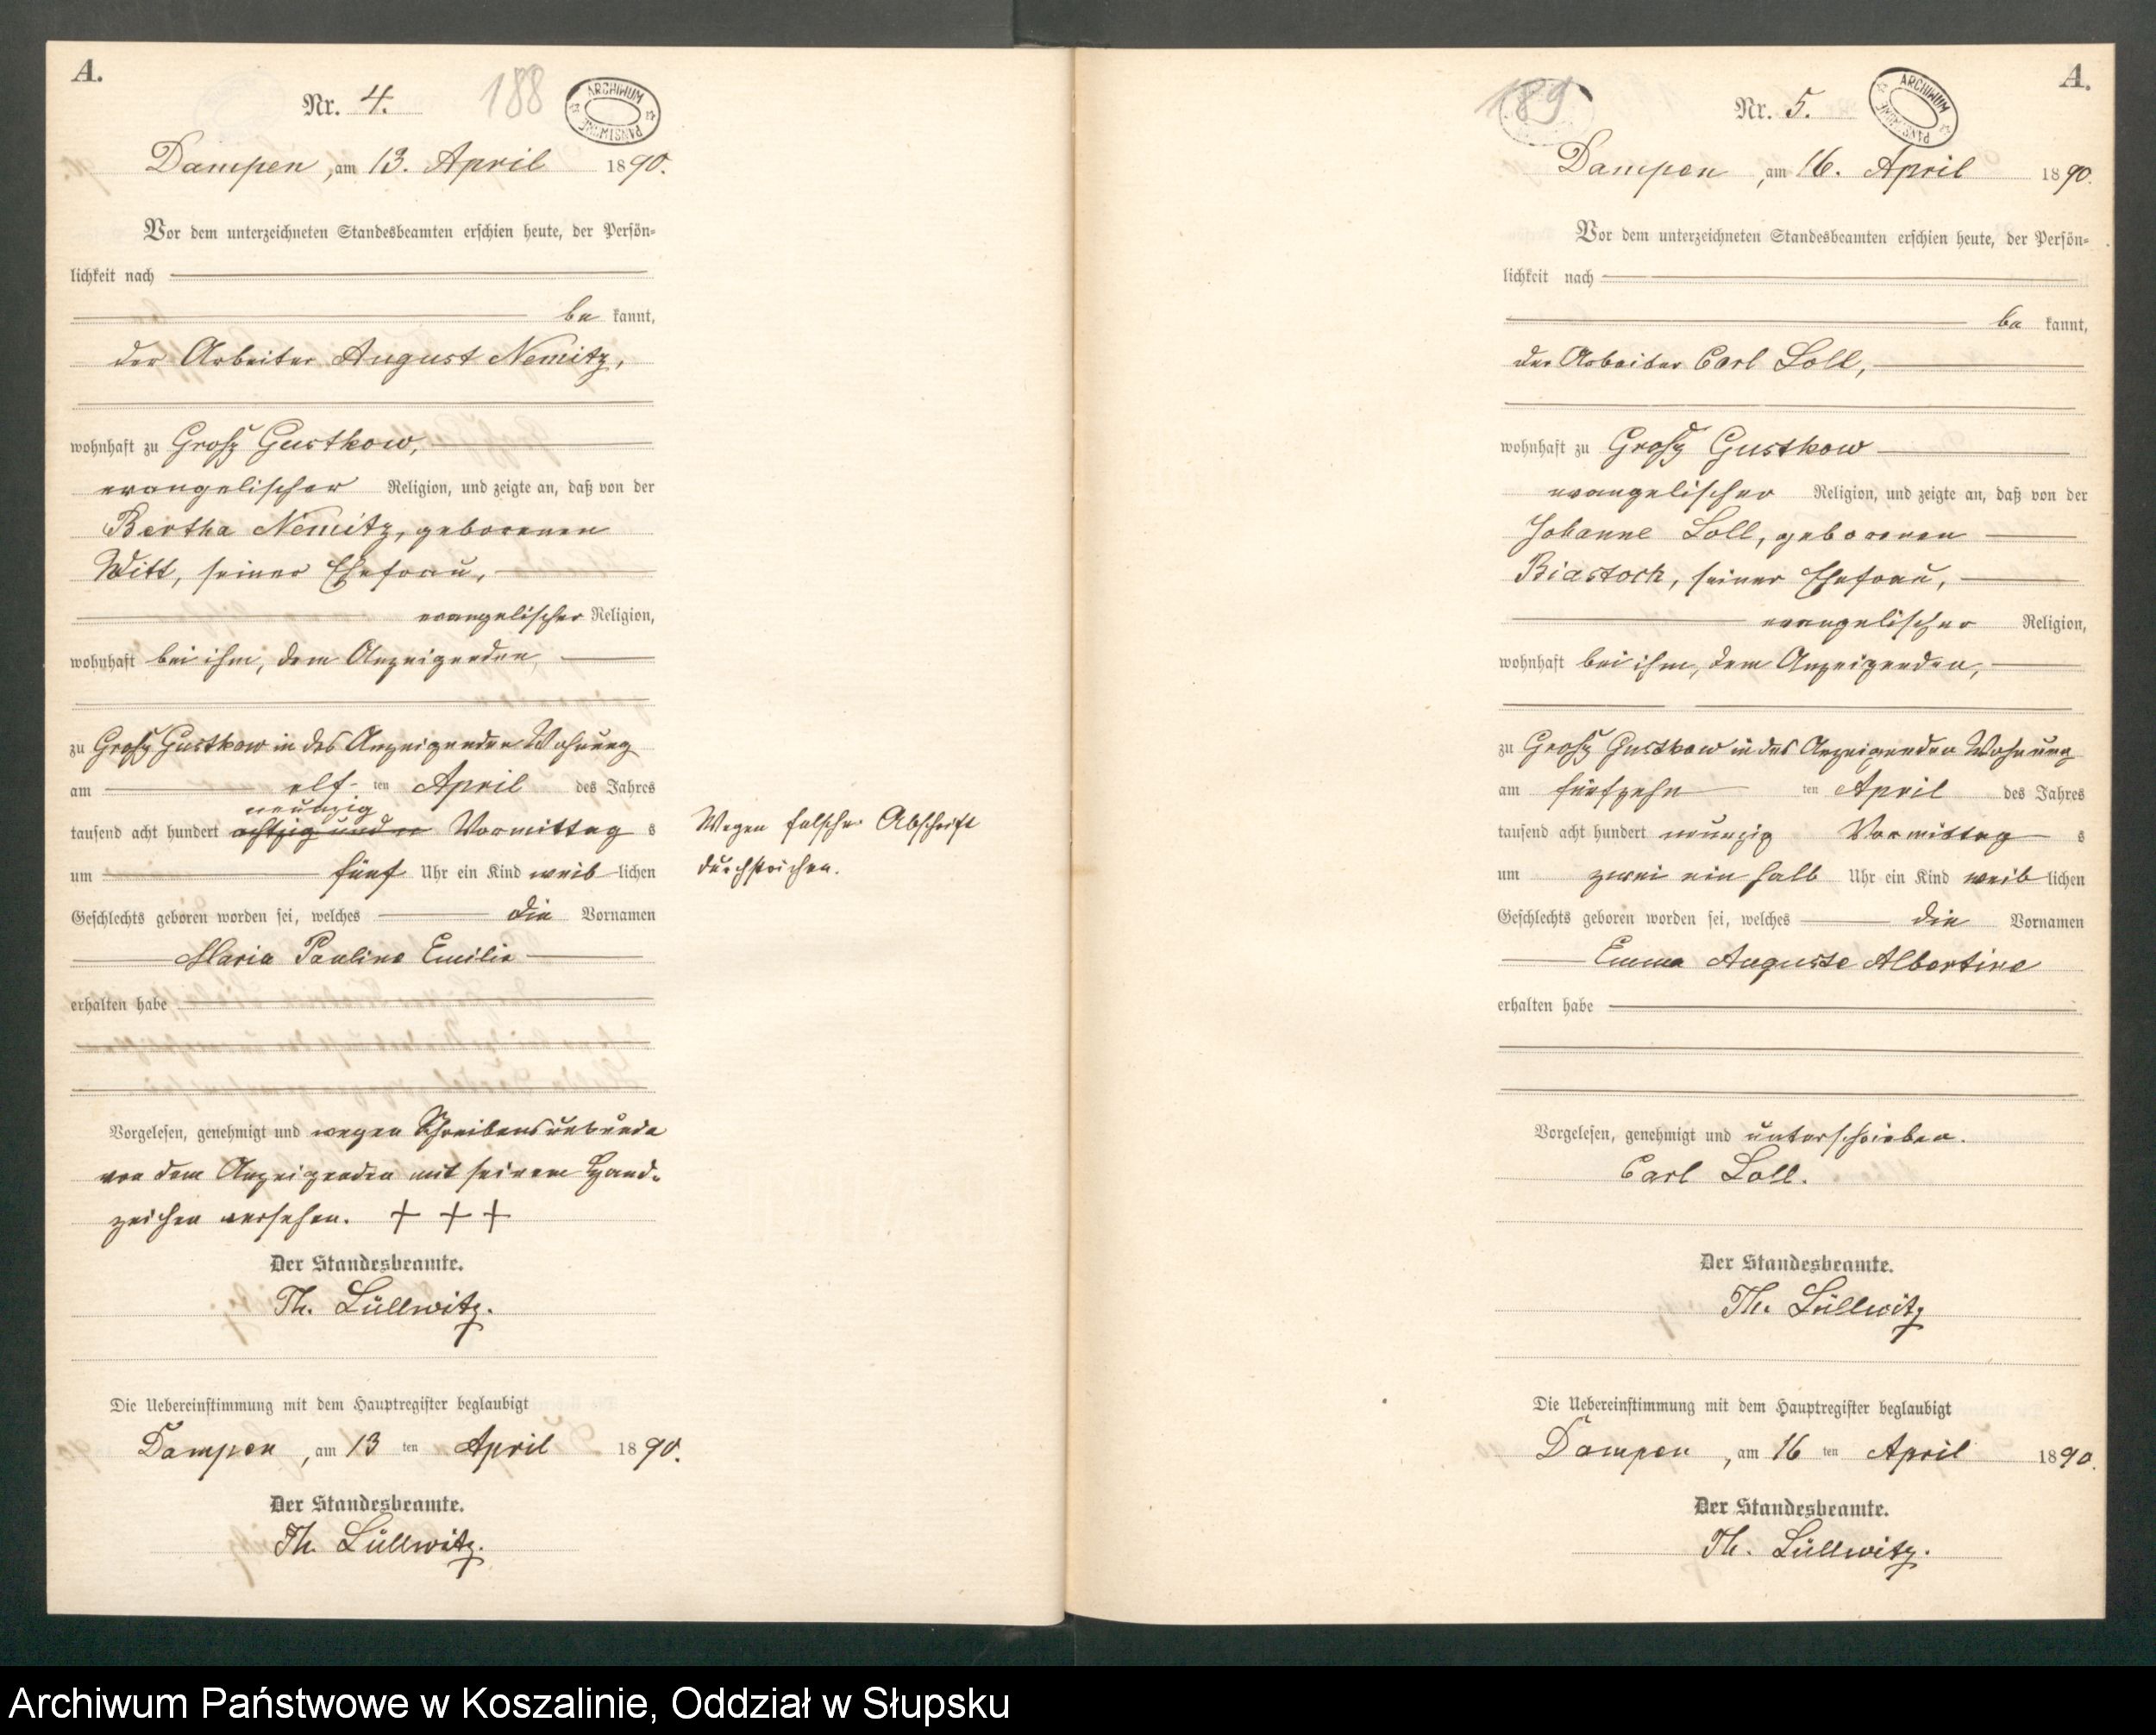 A.
Nr. 4.
188
ARCHIWUM PAŃSTWOWE
Dampen, am 13. April 1890.
Vor dem unterzeichneten Standesbeamten erschien heute, der Persön-
lichkeit nach
be kannt,
der Arbeiter August Nemitz,
wohnhaft zu Groß Gustkow,
evangelischer Religion, und zeigte an, daß von der
Bertha Nemitz, geborenen
Witt, seiner Ehefrau,
evangelischer Religion,
wohnhaft bei ihm, dem Anzeigenden,
zu Groß Gustkow in des Anzeigenden Wohnung
am elf ten April des Jahres
neunzig
tausend acht hundert achtzig und Vormittag s
um fünf Uhr ein Kind weib lichen
Geschlechts geboren worden sei, welches die Vornamen
Maria Pauline Emilie
erhalten habe
Wegen falscher Abschrift
durchstrichen.
Vorgelesen, genehmigt und wegen Schreibensunkunde
von dem Anzeigenden mit seinem Hand-
zeichen versehen. + + +
Der Standesbeamte.
Th. Lüllwitz.
Die Uebereinstimmung mit dem Hauptregister beglaubigt
Dampen, am 13 ten April 1890.
Der Standesbeamte.
Th. Lüllwitz.
A.
189
Nr. 5.
ARCHIWUM PAŃSTWOWE
Dampen, am 16. April 1890.
Vor dem unterzeichneten Standesbeamten erschien heute, der Persön-
lichkeit nach
be kannt,
der Arbeiter Carl Loll,
wohnhaft zu Groß Gustkow
evangelischer Religion, und zeigte an, daß von der
Johanne Loll, geborenen
Biastock, seiner Ehefrau,
evangelischer Religion,
wohnhaft bei ihm, dem Anzeigenden,
zu Groß Gustkow in des Anzeigenden Wohnung
am fünfzehn ten April des Jahres
tausend acht hundert neunzig Vormittag s
um zwei ein halb Uhr ein Kind weib lichen
Geschlechts geboren worden sei, welches die Vornamen
Emma Auguste Albertine
erhalten habe
Vorgelesen, genehmigt und unterschrieben.
Carl Loll.
Der Standesbeamte.
Th. Lüllwitz
Die Uebereinstimmung mit dem Hauptregister beglaubigt
Dampen, am 16 ten April 1890.
Der Standesbeamte.
Th. Lüllwitz.
Archiwum Państwowe w Koszalinie, Oddział w Słupsku